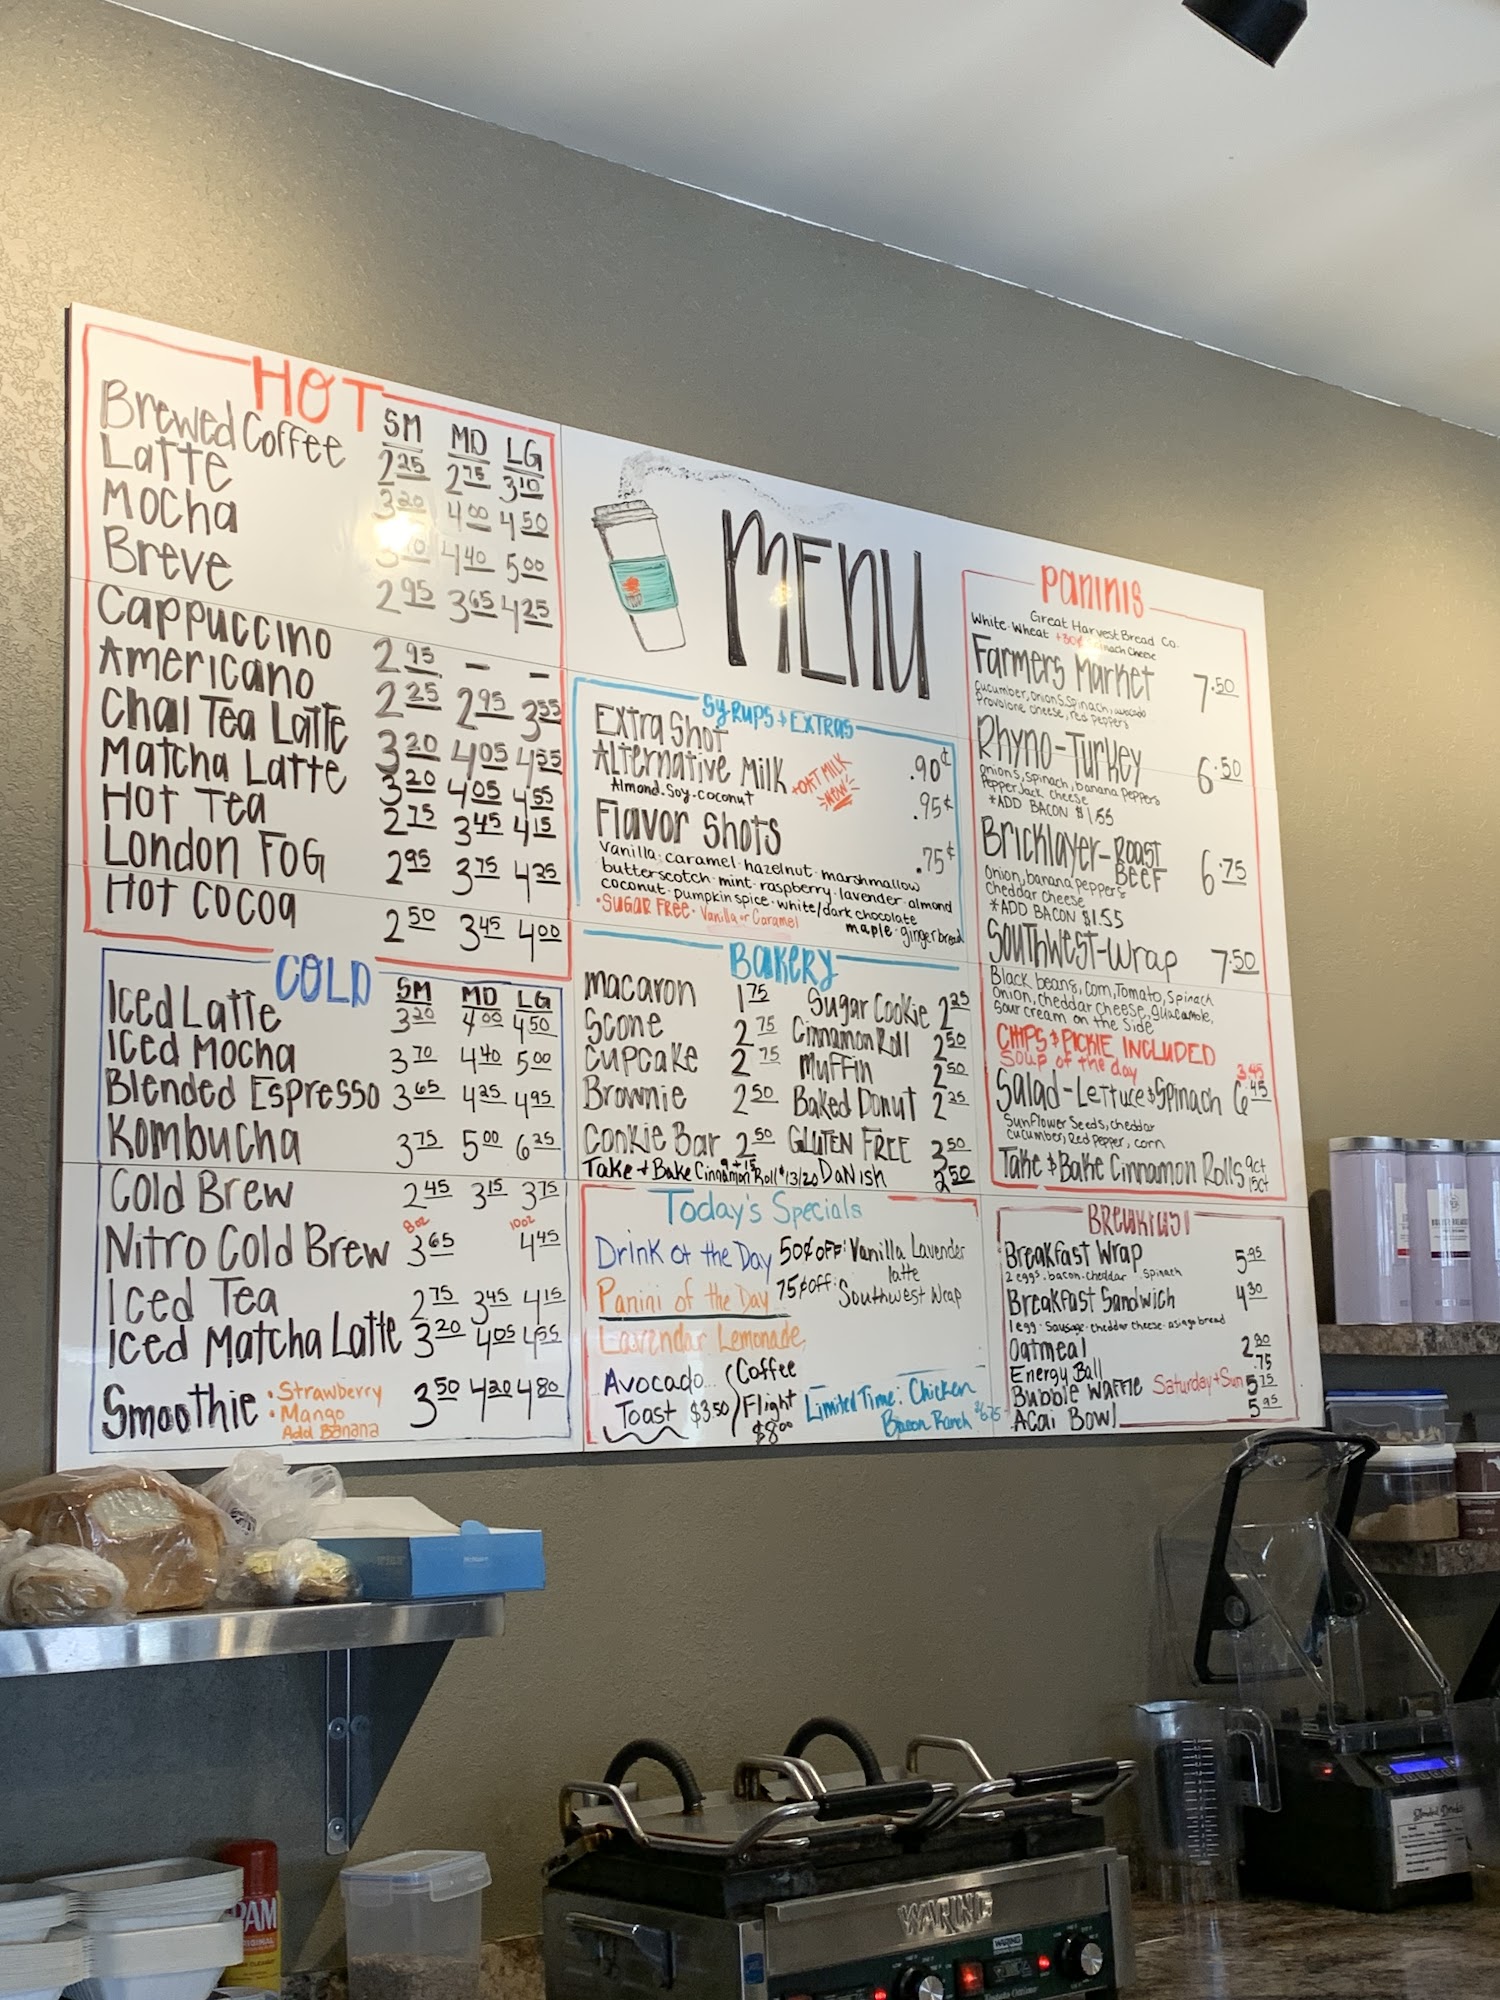 HOT
SM MD LG
Brewed Coffee 2.25 2.75 3.10
Latte 3.20 4.00 4.50
Mocha 4.40 5.00
Breve 2.95 3.65 4.25
Cappuccino 2.95 - -
Americano 2.25 2.95 3.55
Chai Tea Latte 3.20 4.05 4.55
Matcha Latte 3.20 4.05 4.55
Hot Tea 2.75 3.45 4.15
London Fog 2.95 3.75 4.25
Hot Cocoa 2.50 3.45 4.00
COLD
SM MD LG
Iced Latte 3.20 4.00 4.50
Iced Mocha 3.70 4.40 5.00
Blended Espresso 3.65 4.25 4.95
Kombucha 3.75 5.00 6.25
Cold Brew 2.45 3.15 3.75
8oz 10oz
Nitro Cold Brew 3.65 4.45
Iced Tea 2.75 3.45 4.15
Iced Matcha Latte 3.20 4.05 4.55
Smoothie • Strawberry 3.50 4.20 4.80
• Mango
Add Banana
MENU
SYRUPS + EXTRAS
Extra Shot .90¢
Alternative Milk + OAT MILK NEW .95¢
Almond. Soy. Coconut
Flavor Shots .75¢
Vanilla. caramel. hazelnut. marshmallow
butterscotch. mint. raspberry. lavender. almond
coconut. pumpkin spice. white/dark chocolate
• SUGAR FREE • Vanilla or Caramel
maple. gingerbread
BAKERY
macaron 1.75 Sugar Cookie 2.25
Scone 2.75 Cinnamon Roll 2.50
Cupcake 2.75 Muffin 2.50
Brownie 2.50 Baked Donut 2.25
Cookie Bar 2.50 GLUTEN FREE 3.50
9 + 15
Take + Bake Cinnamon Roll $13/20 Danish 2.50
Today's Specials
Drink of the Day 50¢ OFF: Vanilla Lavender
latte
Panini of the Day 75¢ off: Southwest Wrap
Lavendar Lemonade
Avocado
Toast $3.50
Coffee
Flight
$8.00
Limited Time: Chicken
Bacon Ranch
PANINIS
Great Harvest Bread Co.
White. Wheat
Cheese
Farmers Market 7.50
Cucumber, onions, spinach, avocado
Provolone cheese, red peppers
Rhyno-Turkey 6.50
onions, spinach, banana peppers
Pepper Jack cheese
*ADD BACON $1.55
Bricklayer-Roast 6.75
Beef
Onion, banana peppers
cheddar cheese
*ADD BACON $1.55
Southwest-Wrap 7.50
Black beans, Corn, Tomato, Spinach
Onion, cheddar cheese, guacamole,
Sour cream on the Side
CHIPS & PICKLE INCLUDED
Soup of the day 3.45
Salad-Lettuce & Spinach 6.45
Sunflower Seeds, cheddar
cucumber, Red Pepper, corn
Take & Bake Cinnamon Rolls 9ct
15ct
BREAKFAST
Breakfast Wrap 5.95
2 eggs. bacon. cheddar. spinach
Breakfast Sandwich 4.30
1 egg. Sausage. cheddar cheese. asiago bread
Oatmeal
Energy Ball .75
Bubble Waffle Saturday + Sun 5.75
Acai Bowl 5.95
PAM
ORIGINAL
WARING
WARING